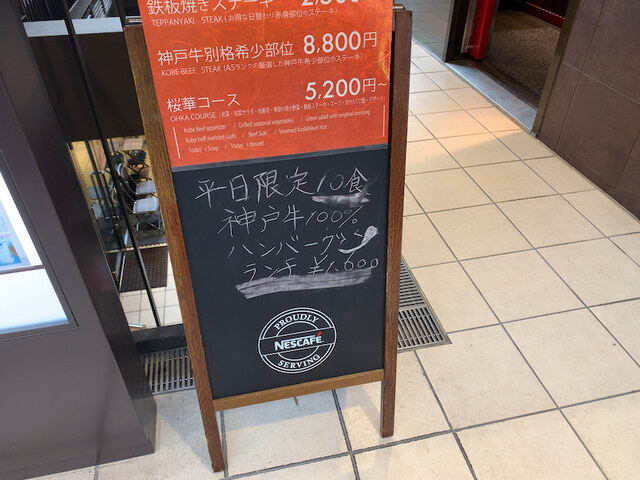 鉄板焼きステーキ
TEPPANYAKI STEAK (お得な日替わり赤身部位のステーキ)
神戸牛別格希少部位 8,800円
KOBE BEEF STEAK (A5ランクの厳選した神戸牛希少部位のステーキ)
桜華コース 5,200円~
OHKA COURSE
Kobe Beef appetizer / Grilled seasonal vegetables / Green salad with original dressing
Kobe beef marbled sushi / Beef Steak / Steamed Koshihikari rice
Today's Soup / Today's dessert
平日限定10食
神戸牛100%
ハンバーグ
ランチ ¥1,600
PROUDLY
NESCAFÉ
SERVING